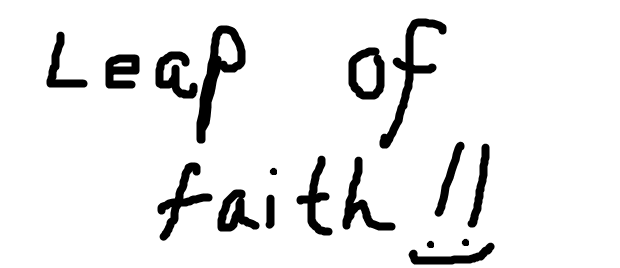 Leap of
faith !!